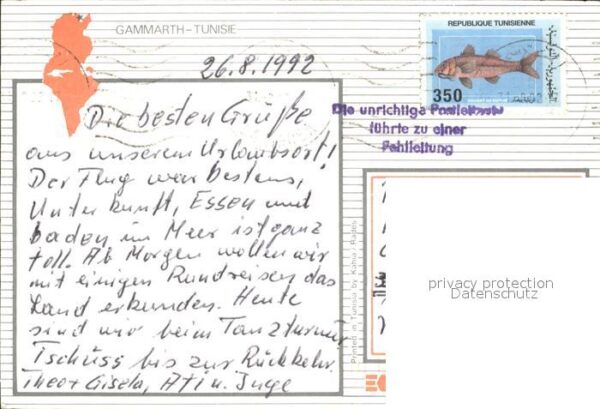 GAMMARTH-TUNISIE
26.8.1992
REPUBLIQUE TUNISIENNE
350
Die unrichtige Postleitzahl
führte zu einer
Fehlleitung
Die besten Grüße
aus unserem Urlaubsort!
Der Flug war bestens,
Unterkunft, Essen und
baden im Meer ist ganz
toll. Ab Morgen wollen wir
mit einigen Rundreisen das
Land erkunden. Heute
sind wir beim Tanzturnier
Tschüss bis zur Rückkehr.
Theo + Gisela, Ati u. Inge
Printed in Tunisia by Kahia - Radès
privacy protection
Datenschutz